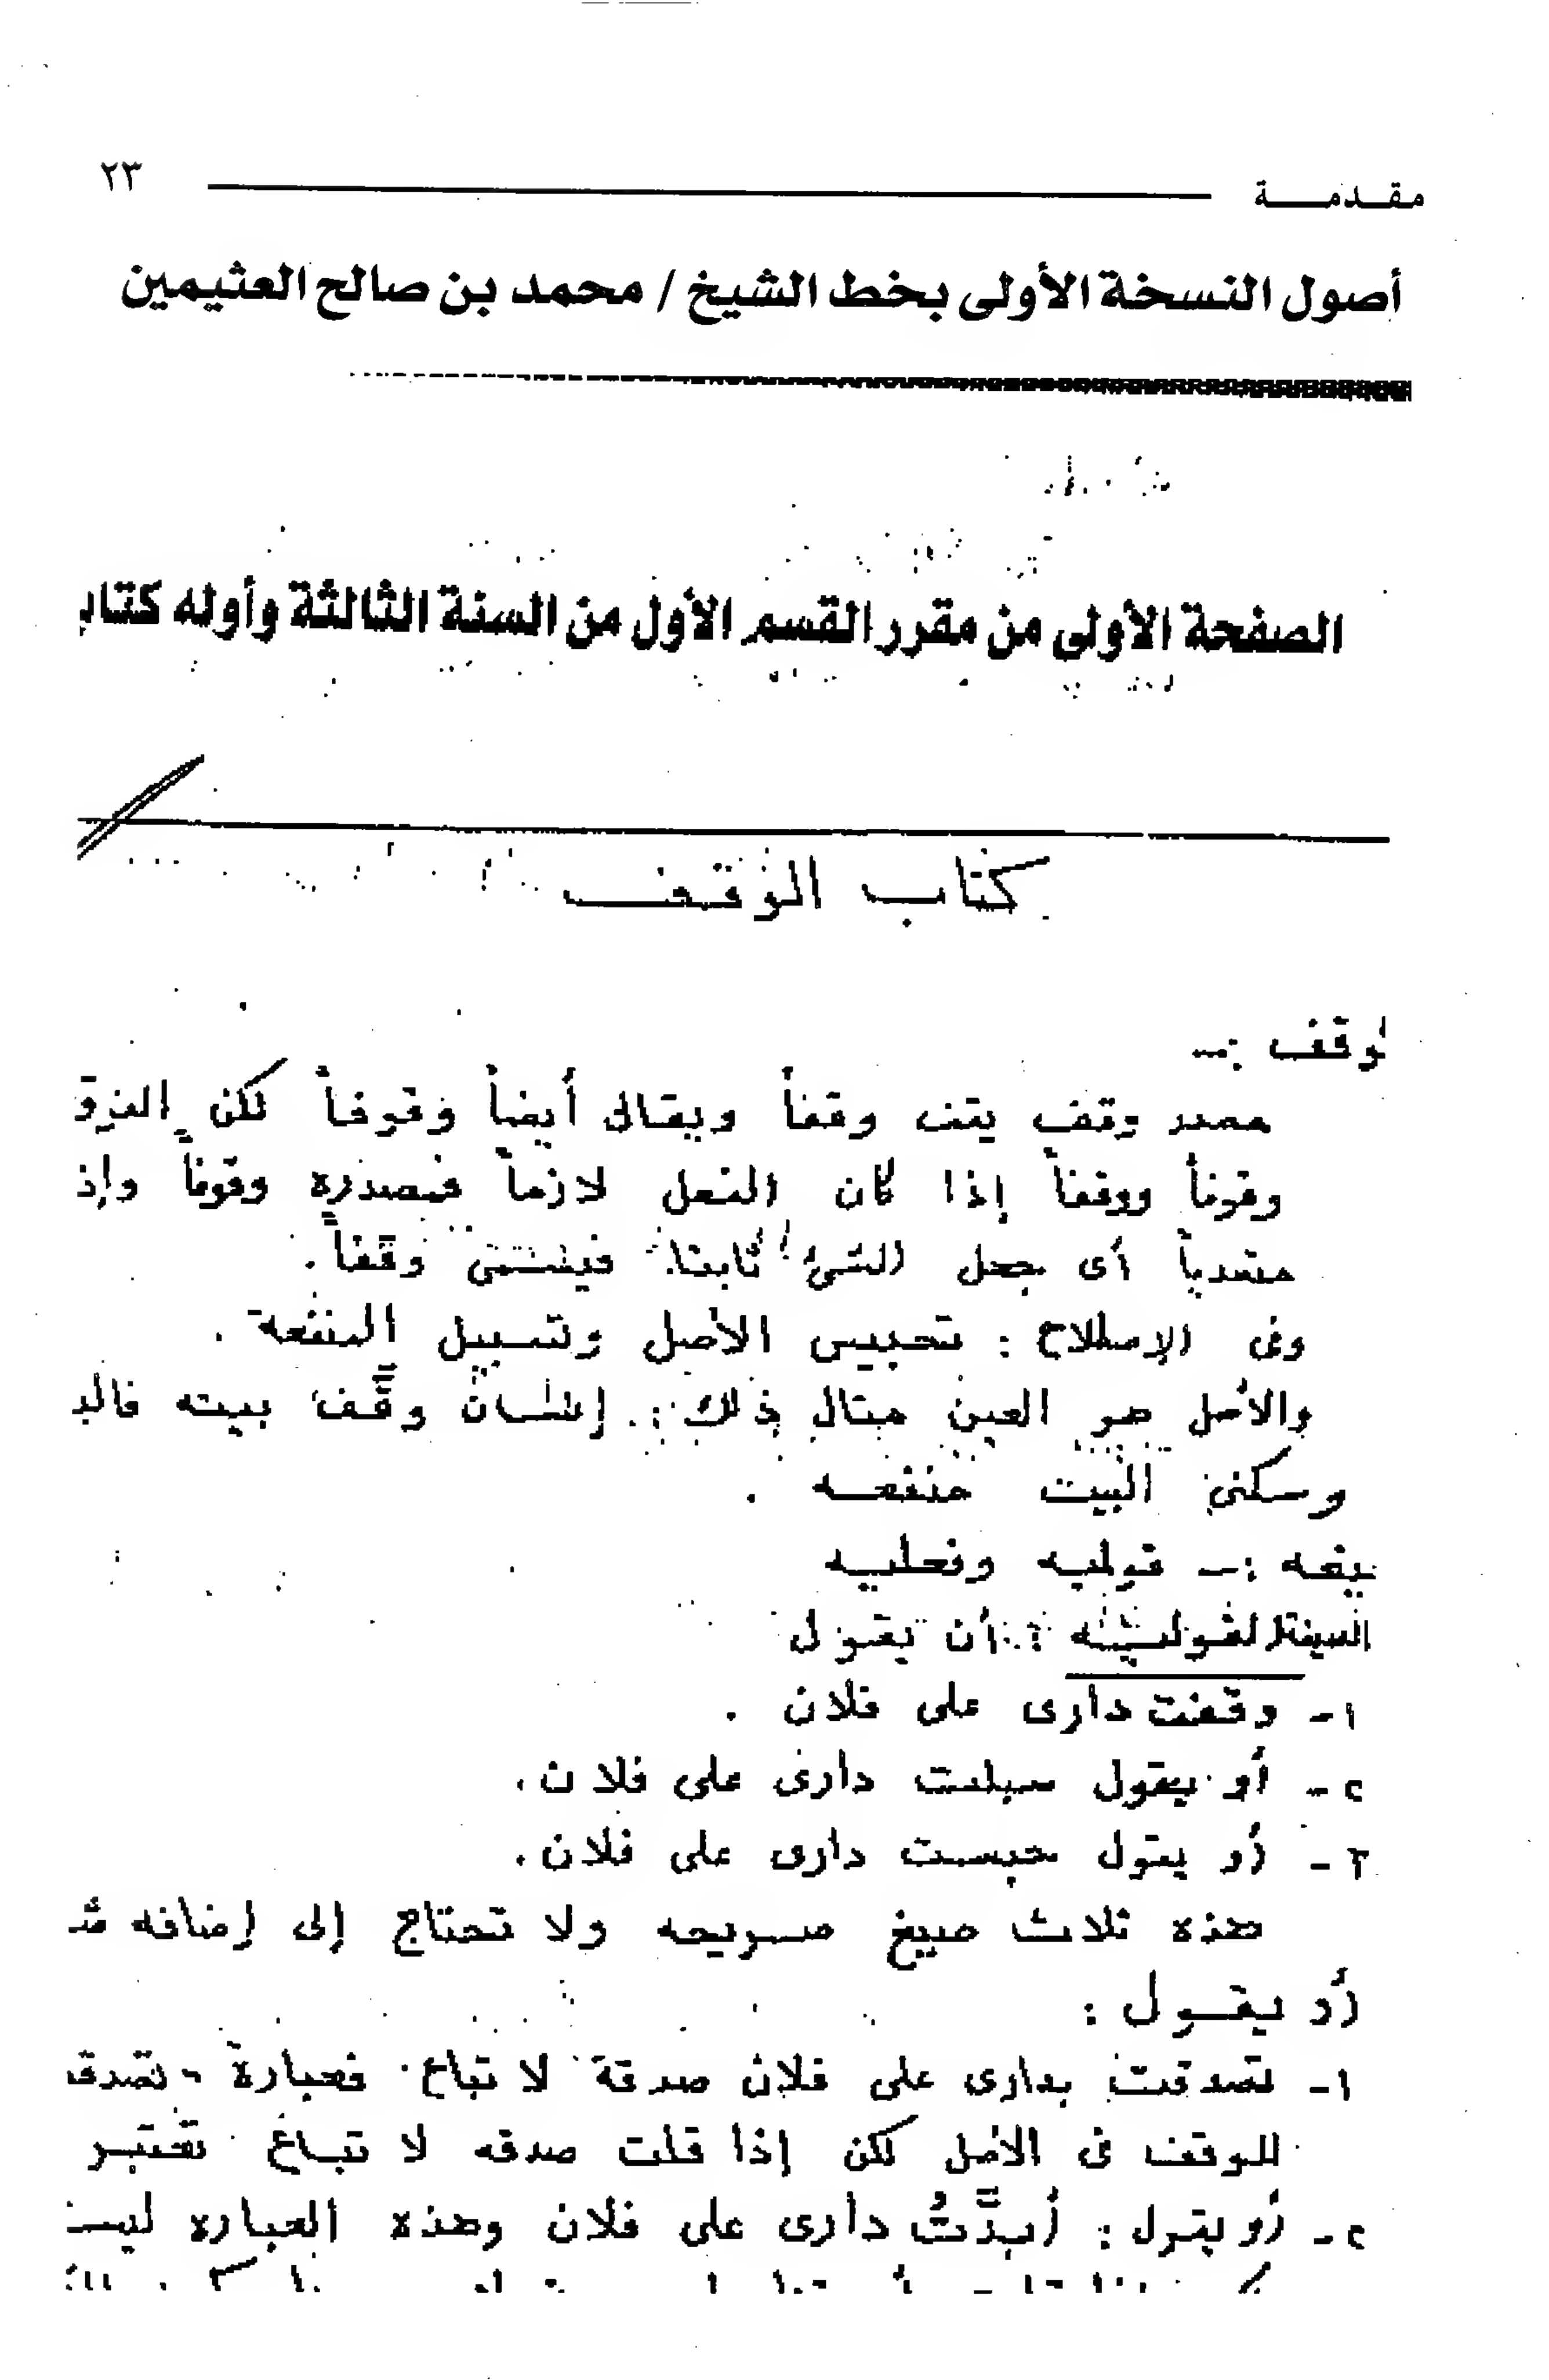 مقدمة ٢٣
أصول النسخة الأولى بخط الشيخ / محمد بن صالح العثيمين
الصفحة الأولى من مقرر القسم الأول من السنة الثالثة وأوله كتاب
كتاب الوقف
لوقف :ـ
مصدر وقف يقف وقفاً ويقال أيضاً وقوفاً لكن الفرق
وقوفاً ووقفاً إذا كان الفعل لازماً فمصدره وقوفاً وإذ
متعدياً أى جعل الشئ ثابتا فيسمى وقفاً .
وفى الإصطلاح : تحبيس الأصل وتسبيل المنفعة .
والأصل هو العين مثال ذلك : إنسان وقف بيته فالب
وسكنى البيت منفعه .
يغه :ـ قوليه وفعليه
الصيغة القوليه : أن يقول
١- وقفت دارى على فلان .
٢- أو يقول سبلت دارى على فلان .
٣- أو يقول حبست دارى على فلان .
هذه ثلاث صيغ صريحه ولا تحتاج إلى إضافه
أو يقول :
١- تصدقت بدارى على فلان صدقة لا تباع فعبارة - تصدق
للوقف فى الأصل لكن إذا قلت صدقه لا تباع تعتبر
٢- أو يقول : أبدَّتُ دارى على فلان وهذه العباره ليس